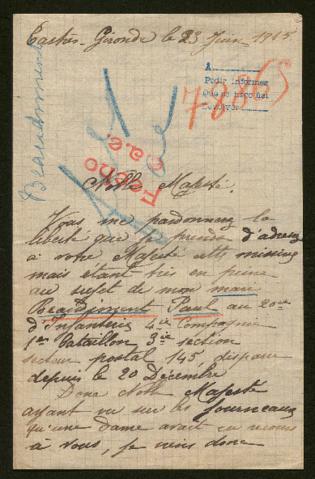 Castres-Gironde le 23 Juin 1915
Beaudiment
A
Pedir informes
78865
Fecho
a.c.
Noble Majesté.
Vous me pardonnerez la
liberté que je prends d'adresser
à votre Majesté cette missive
mais etant très en peine
au sujet de mon mari
Beaudiment Paul au 20ie
d'Infanterie 4ie Compagnie
1er bataillon 3ie section
secteur postal 145 disparu
depuis le 20 Décembre
Donc Noble Majesté
ayant vu sur les Journeaux
qu'une dame avait eu recours
à vous, je viens donc